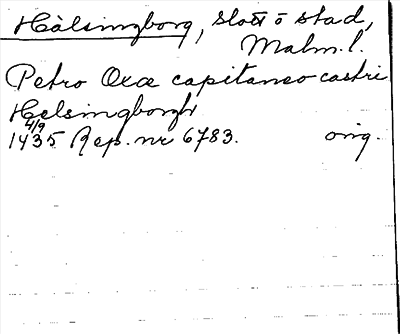 Hälsingborg, slott o stad,
Malm. l.
Petro Oxæ capitaneo castri
Helsingborgh
4/9
1435 Rep. nr 6783. orig.